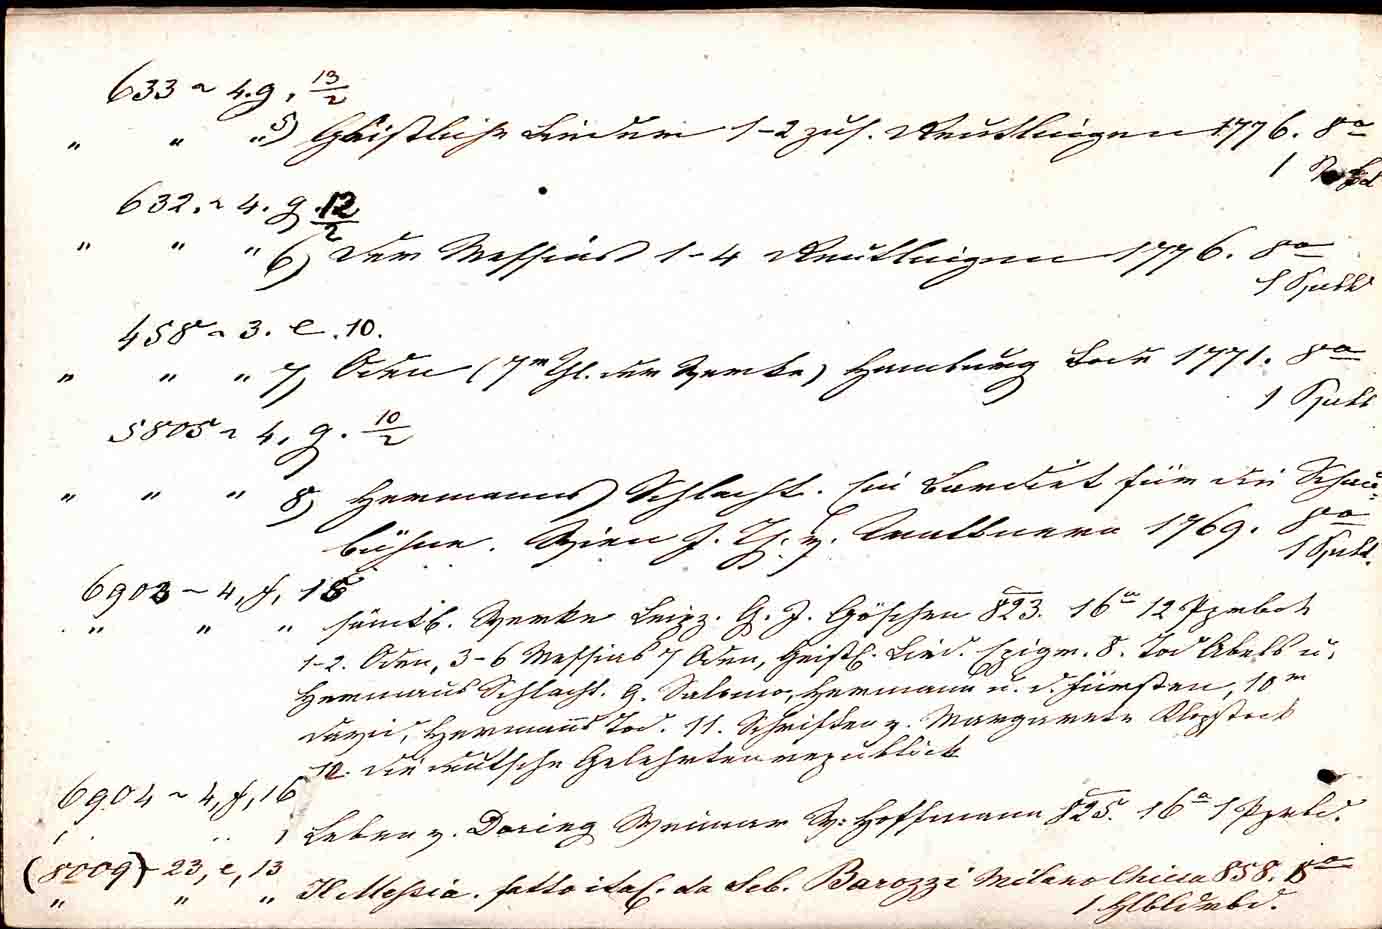 633 ~ 4. g. 13/2
" " " 5) Geistliche Lieder 1-2 zus. Reutlingen 1776. 8º
1
632. ~ 4. g. 12/2
" " " 6) Der Messias 1-4 Reutlingen 1776. 8º
1
458 ~ 3. e. 10.
" " " 7) Oden (7r Thl. der Werke) Hamburg Bode 1771. 8º
1
5805 ~ 4. g. 10/2
" " " 8) Hermanns Schlacht. Ein Bardiet für die Schau-
bühne. Wien J. Th. v. Trattnern 1769. 8º
1
6903 ~ 4, f, 15
" " " sämtl. Werke Leipz. G. J. Göschen 823. 16º 12
1-2. Oden, 3-6 Messias 7 Oden, Geistl. Lied. Epigr. 8. Tod Abels u.
Hermanns Schlacht. 9. Salomo, Hermann u. d. Fürsten, 10
David, Hermanns Tod. 11. Schriften v. Margarete Klopstock
12. Die deutsche Gelehrtenrepublick
6904 ~ 4, f, 16
" " " Leben v. Doring Weimar W. Hoffmann 825. 16º 1
(8009) - 23, e, 13
" " " Il Messia. fatto ital. da Seb. Barozzi Milano Chiusi 858. 8º
1 Hlbldrbd.